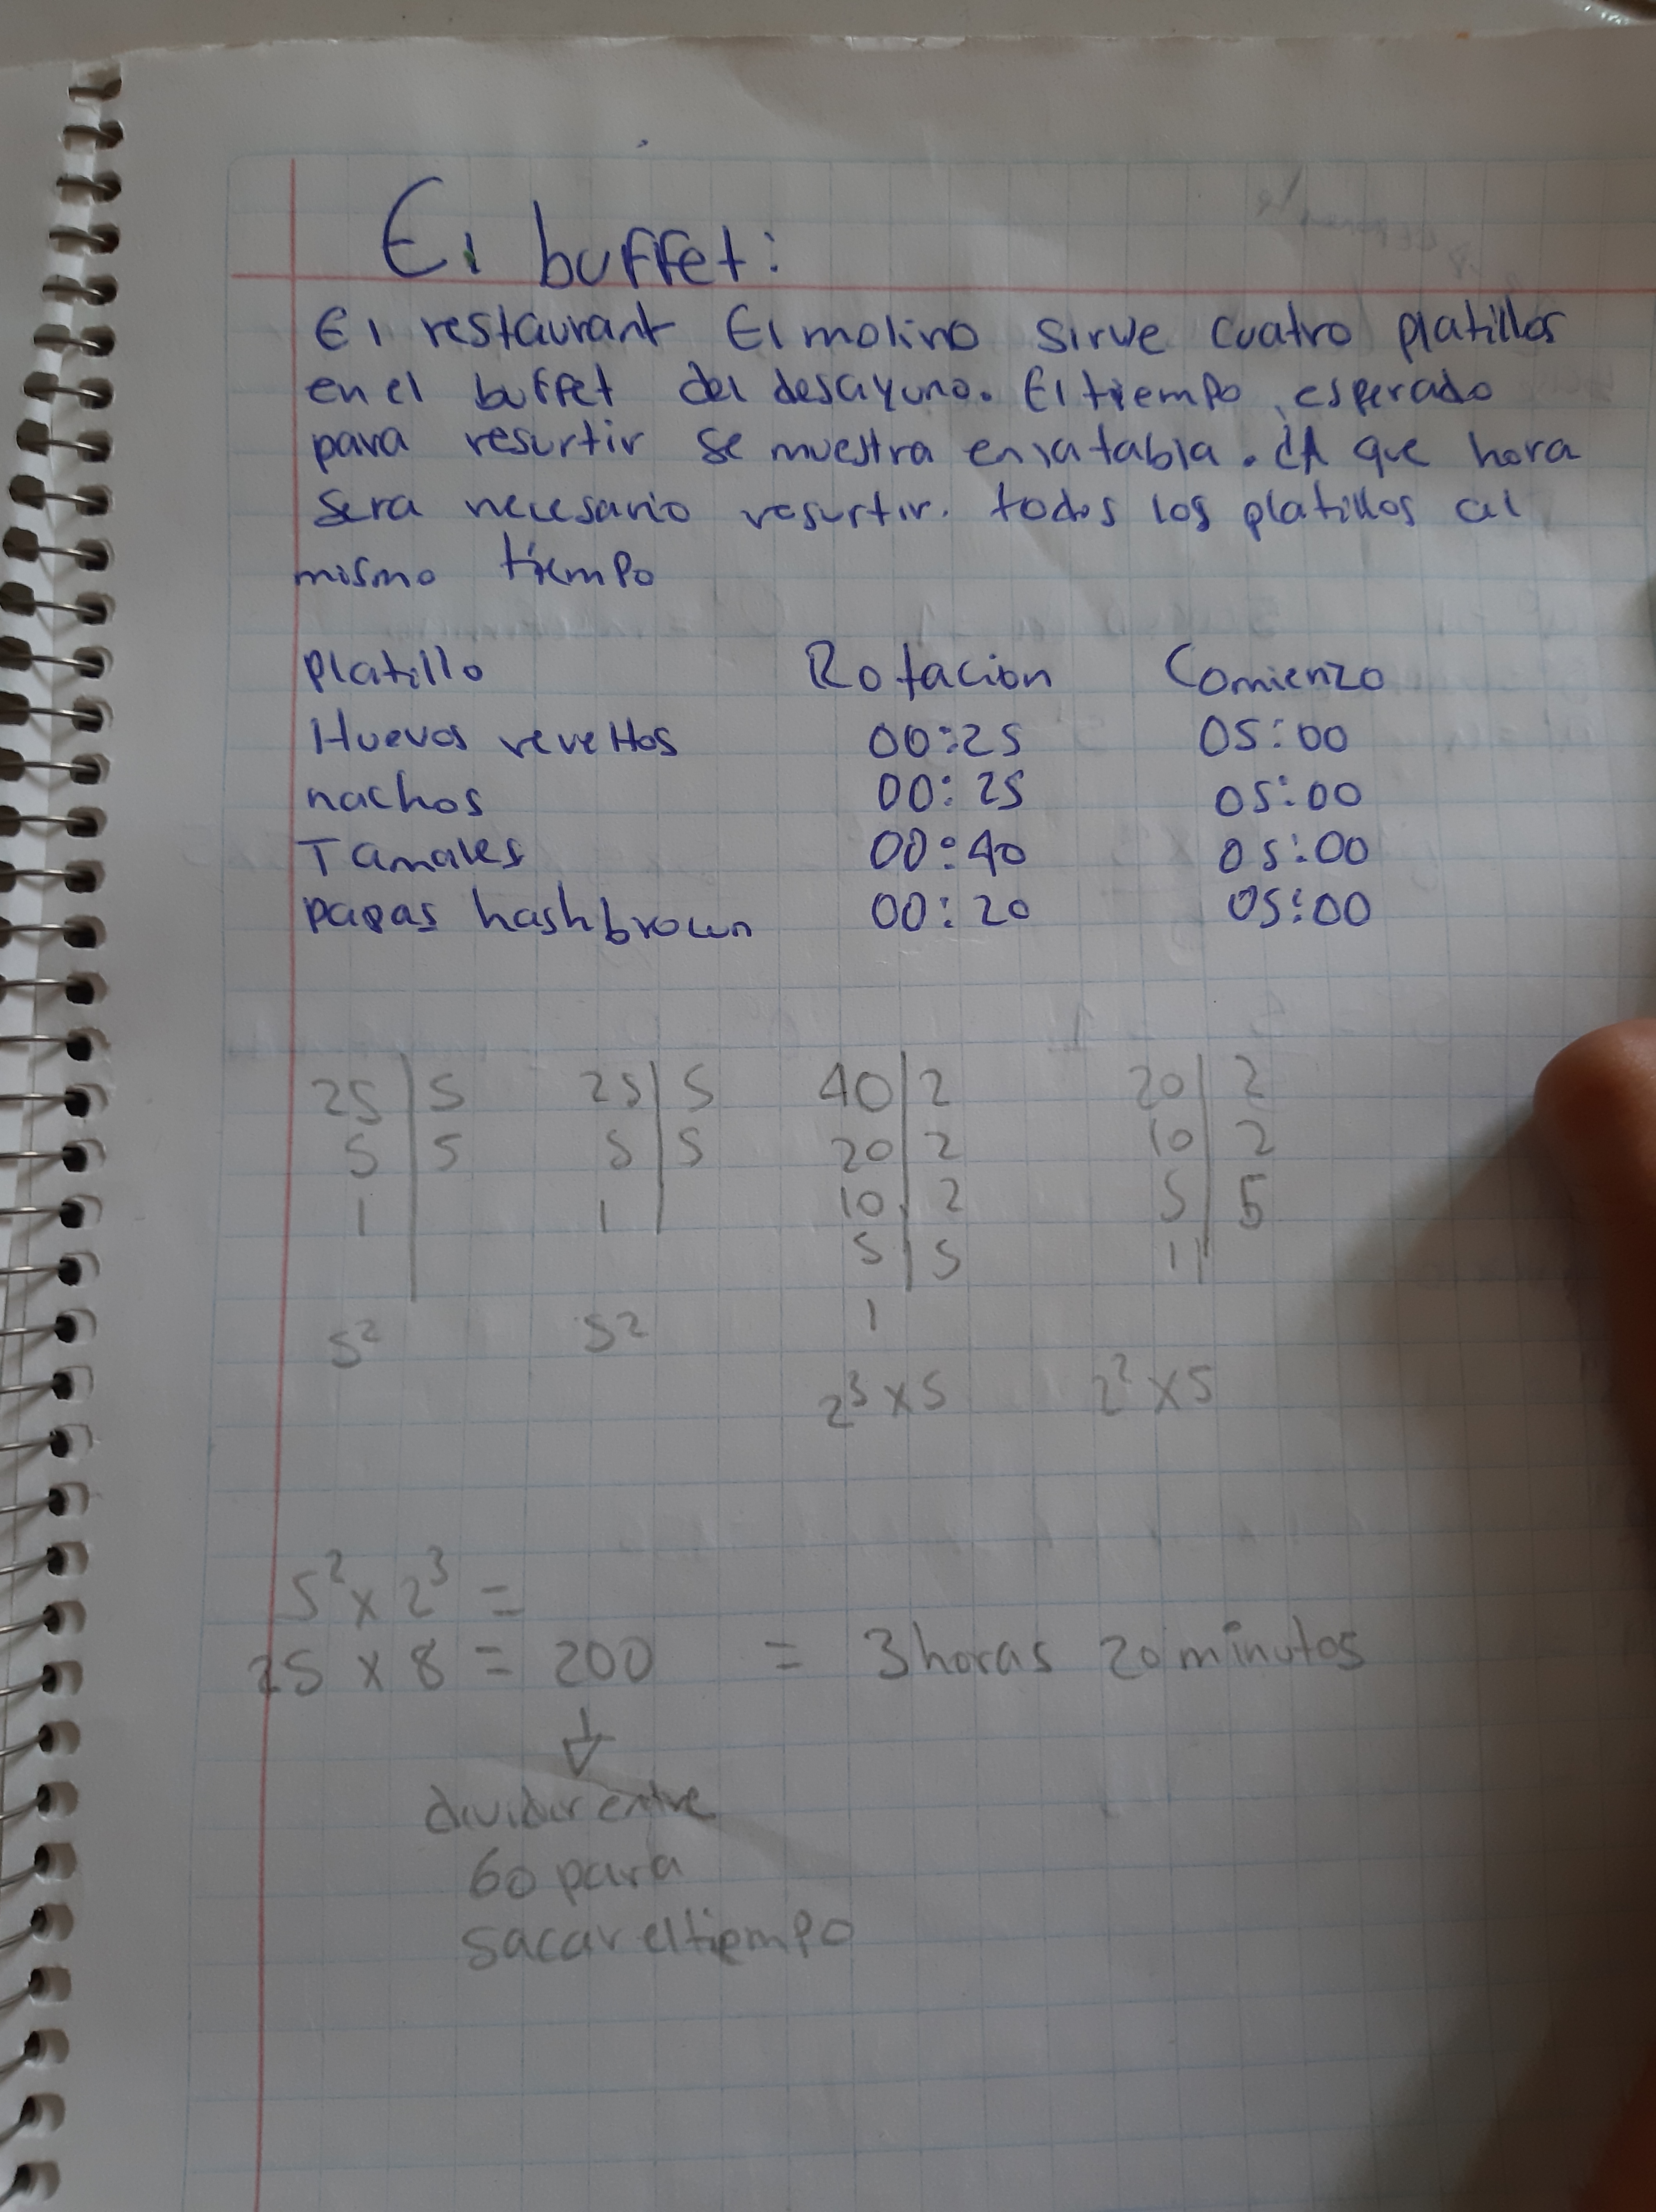 El buffet:
El restaurant El molino sirve cuatro platillos
en el buffet del desayuno. El tiempo esperado
para resurtir se muestra en la tabla. ¿A que hora
sera necesario resurtir. todos los platillos al
mismo tiempo
Platillo Rotacion Comienzo
Huevos reveltos 00:25 05:00
nachos 00:25 05:00
Tamales 00:40 05:00
papas hashbrown 00:20 05:00
25 | 5 25 | 5 40 | 2 20 | 2
5 | 5 5 | 5 20 | 2 10 | 2
1 | 1 | 10 | 2 5 | 5
5 | 5 1 |
5² 5² 1
2³ x 5 2² x 5
5² x 2³ =
25 x 8 = 200 = 3 horas 20 minutos
↓
dividir entre
60 para
sacar el tiempo